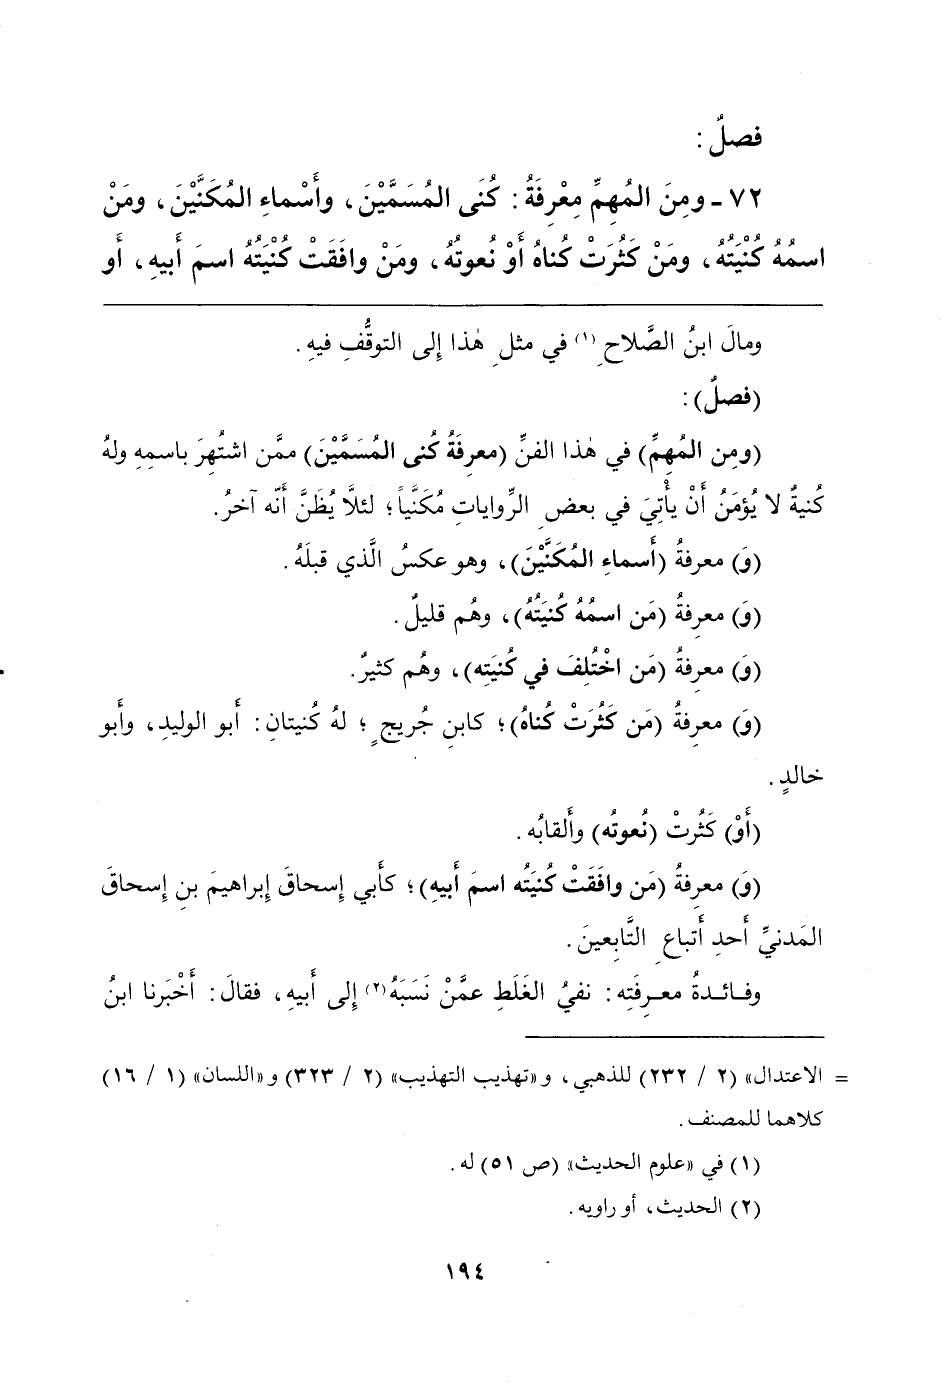 فصلٌ :
٧٢ ـ ومِنَ المُهِمِّ مِعْرِفَةُ : كُنَى المُسَمَّيْنَ ، وأَسْماءِ المُكَنَّيْنَ ، ومَنْ
اسمُهُ كُنْيَتُهُ ، ومَنْ كَثُرَتْ كُناهُ أَوْ نُعوتُهُ ، ومَنْ وافَقَتْ كُنْيَتُهُ اسمَ أَبيهِ ، أَو
ومالَ ابنُ الصَّلاحِ (١) في مثلِ هٰذا إِلى التوقُّفِ فيهِ .
(فصلٌ) :
(ومِن المُهِمِّ) في هٰذا الفنِّ (معرِفَةُ كُنى المُسَمَّيْنَ) ممَّن اشتُهِرَ باسمِهِ ولهُ
كُنيةٌ لا يُؤمَنُ أَنْ يأْتِيَ في بعضِ الرِّواياتِ مُكَنَّياً ؛ لئلَّا يُظَنَّ أَنَّه آخرُ.
(وَ) معرفةُ (أَسماءِ المُكَنَّيْنَ) ، وهو عكسُ الَّذي قبلَهُ .
(وَ) معرِفةُ (مَن اسمُهُ كُنيَتُهُ) ، وهُم قليلٌ .
(وَ) معرفةُ (مَن اخْتُلِفَ في كُنيَتِه) ، وهُم كثيرٌ.
(وَ) معرِفةُ (مَن كَثُرَتْ كُناهُ) ؛ كابنِ جُريجٍ ؛ لهُ كُنيتانِ : أَبو الوليدِ ، وأَبو
خالدٍ .
(أَوْ) كَثُرتْ (نُعوتُه) وأَلقابُه .
(وَ) معرفةُ (مَن وافَقَتْ كُنيَتُه اسمَ أَبيهِ) ؛ كأَبي إِسحاقَ إِبراهيمَ بنِ إِسحاقَ
المَدنيِّ أَحدِ أَتباعِ التَّابِعينَ .
وفـائـدةُ معـرفَتِه : نفيُ الغَلَطِ عمَّنْ نَسَبَهُ(٢) إِلى أَبيهِ ، فقالَ : أَخْبَرنا ابنُ
= الاعتدال» (٢ / ٢٣٢) للذهبي ، و «تهذيب التهذيب» (٢ / ٣٢٣) و «اللسان» (١ / ١٦)
كلاهما للمصنف .
(١) في «علوم الحديث» (ص ٥١) له .
(٢) الحديث ، أو راويه .
١٩٤